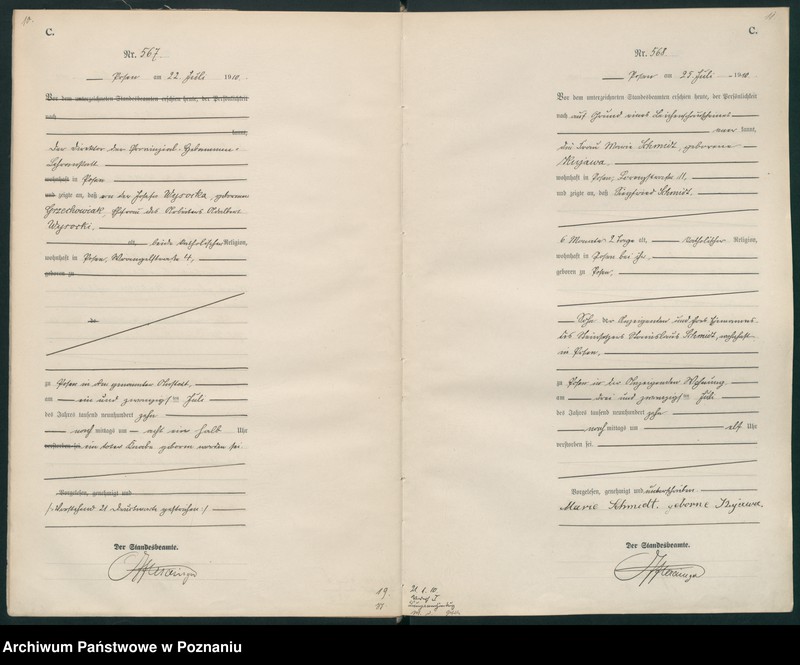 10.
C.
Nr. 567
Posen am 22 Juli 1910
Vor dem unterzeichneten Standesbeamten erschien heute, der Persönlichkeit
nach
kannt,
Der Direktor der Provinzial-Hebammen-
Lehranstalt
wohnhaft in Posen
und zeigte an, daß von der Josefa Wysocka, geborenen
Grzeskowiak, Ehefrau des Arbeiters Adalbert
Wysocki,
alt, beide katholischer Religion,
wohnhaft in Posen, Wrangelstraße 4,
geboren zu
zu Posen in der genannten Anstalt,
am ein und zwanzigsten Juli
des Jahres tausend neunhundert zehn
nach mittags um acht ein halb Uhr
verstorben sei ein toter Knabe geboren worden sei.
Vorgelesen, genehmigt und
/: Vorstehend 21 Druckworte gestrichen :/
Der Standesbeamte.
19.
11
C.
Nr. 568
Posen am 25 Juli 1910
Vor dem unterzeichneten Standesbeamten erschien heute, der Persönlichkeit
nach auf Grund eines Leichenschauscheines
kannt,
die Frau Marie Schmidt, geborene
Kujawa,
wohnhaft in Posen, 11,
und zeigte an, daß Siegfried Schmidt,
6 Monate 2 Tage alt, katholischer Religion,
wohnhaft in Posen bei ihr,
geboren zu Posen,
Sohn der Anzeigenden und ihres Ehemannes
des Stanislaus Schmidt, wohnhaft
in Posen,
zu Posen in der Anzeigenden Wohnung,
am drei und zwanzigsten Juli
des Jahres tausend neunhundert zehn
nach mittags um elf Uhr
verstorben sei.
Vorgelesen, genehmigt und unterschrieben
Marie Schmidt, geborne Kujawa.
Der Standesbeamte.
Archiwum Państwowe w Poznaniu